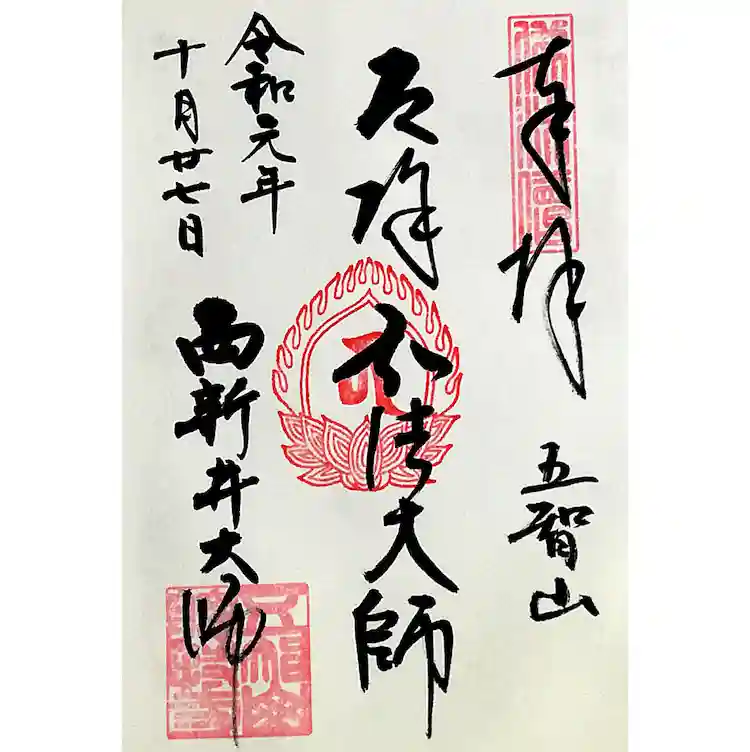 奉拝
五智山
厄除弘法大師
令和元年
十月廿七日
西新井大師